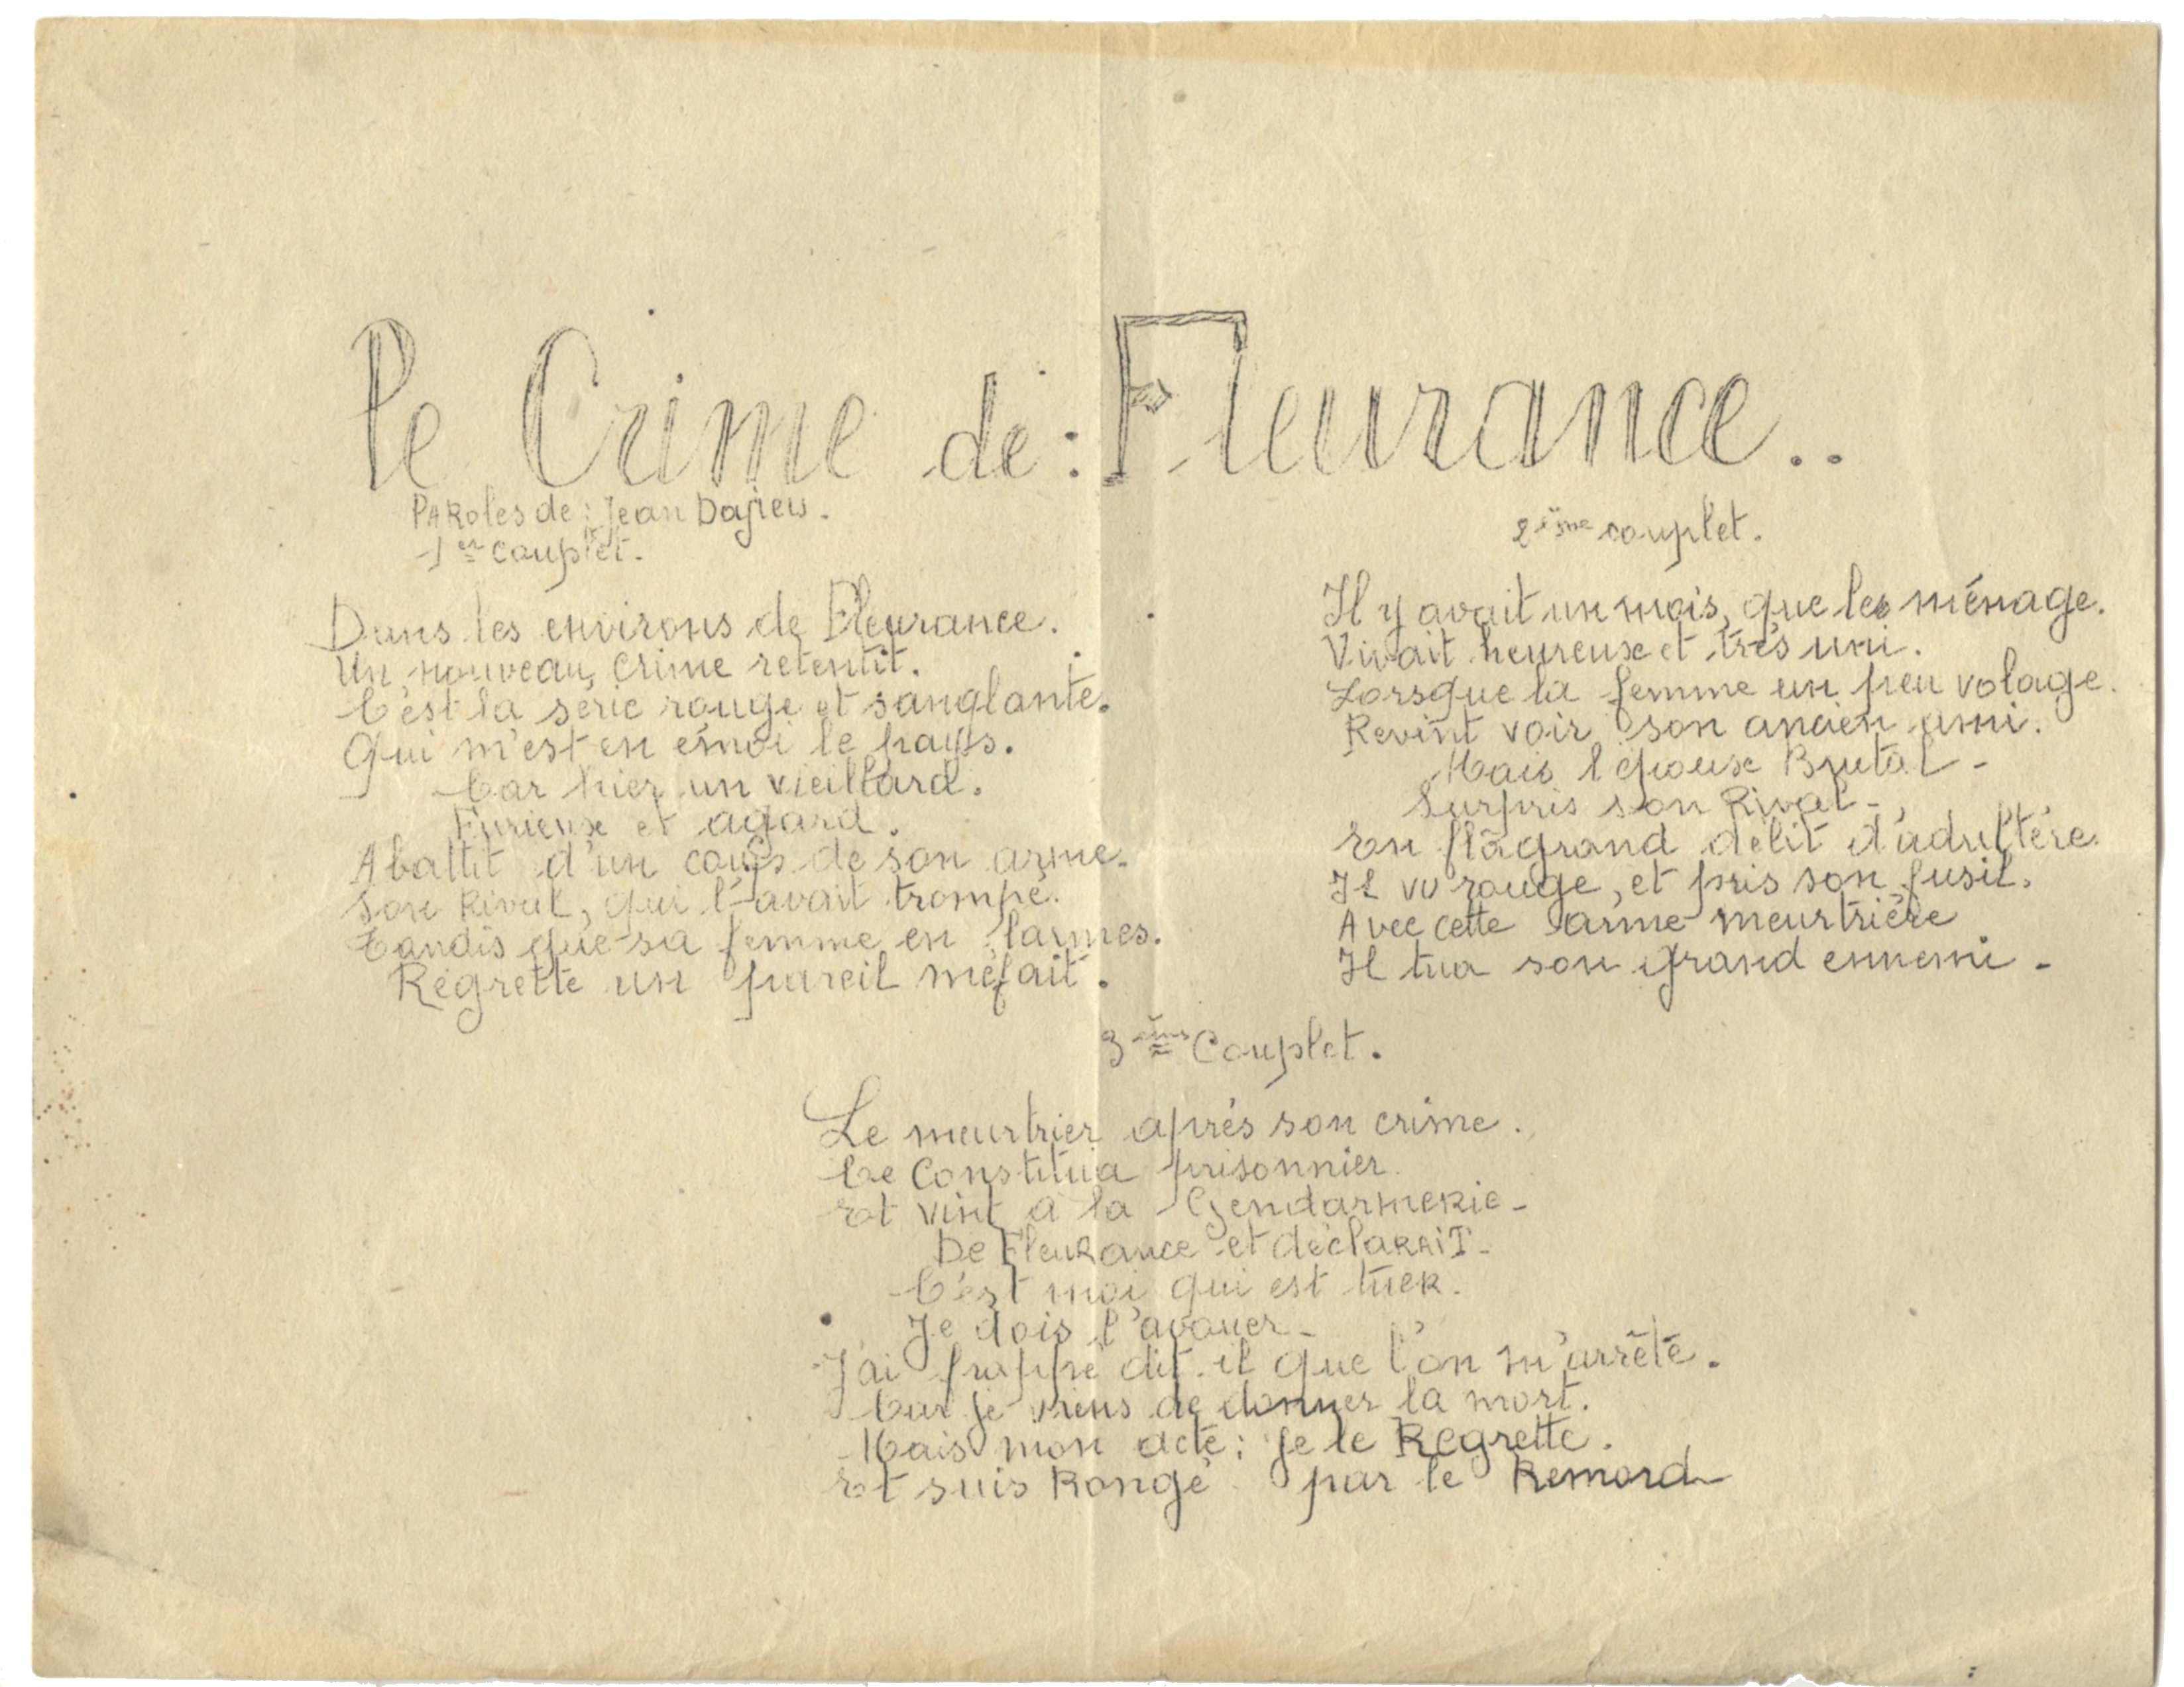 Le Crime de : Fleurance..
Paroles de : Jean Dajieu.
1er couplet.
Dans les environs de Fleurance.
Un nouveau, crime retentit.
C'est la série rouge et sanglante.
Qui m'est en émoi le pays.
Car hier un vieillard.
Furieuse et agard.
Abattit d'un coups de son arme.
Son Rival, qui l'avait trompé.
Tandis que sa femme en larmes.
Regrette un pareil méfait.
2ème couplet.
Il y avait un mois, que les ménage.
Vivait heureuse et très uni.
Lorsque la femme un peu volage.
Revint voir son ancien ami.
Mais l'épouse Brutal -
Surpris son Rival -
En flagrand délit d'adultère
Il vu rouge, et pris son fusil.
Avec cette arme meurtrière
Il tua son grand ennemi -
3ème Couplet.
Le meurtrier après son crime.
Ce Constitua prisonnier
Et vint à la Gendarmerie -
De Fleurance et déclarait -
C'est moi qui est tuer.
Je dois l'avouer -
J'ai frappé dit-il que l'on m'arrête.
Car je viens de donner la mort.
Mais mon acte ; je le Regrette.
Et suis Rongé par le Remord